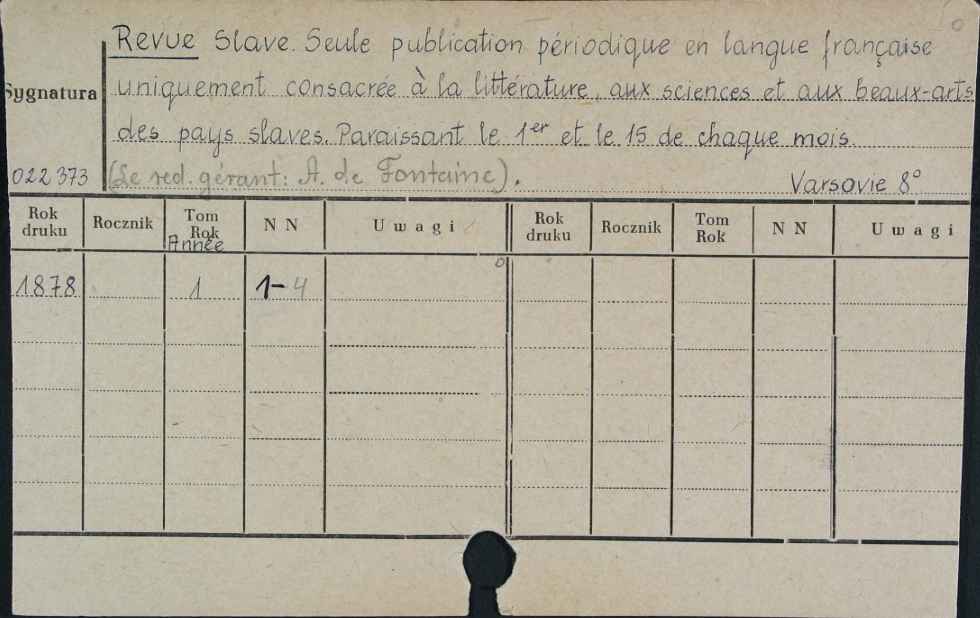 Revue Slave. Seule publication périodique en langue française
Sygnatura uniquement consacrée à la littérature, aux sciences et aux beaux-arts
des pays slaves. Paraissant le 1er et le 15 de chaque mois.
022373 (Le red. gérant: A. de Fontaine).
Varsovie 8°
Rok druku Rocznik Tom Rok Année N N Uwagi Rok druku Rocznik Tom Rok N N Uwagi
1878 1 1-4